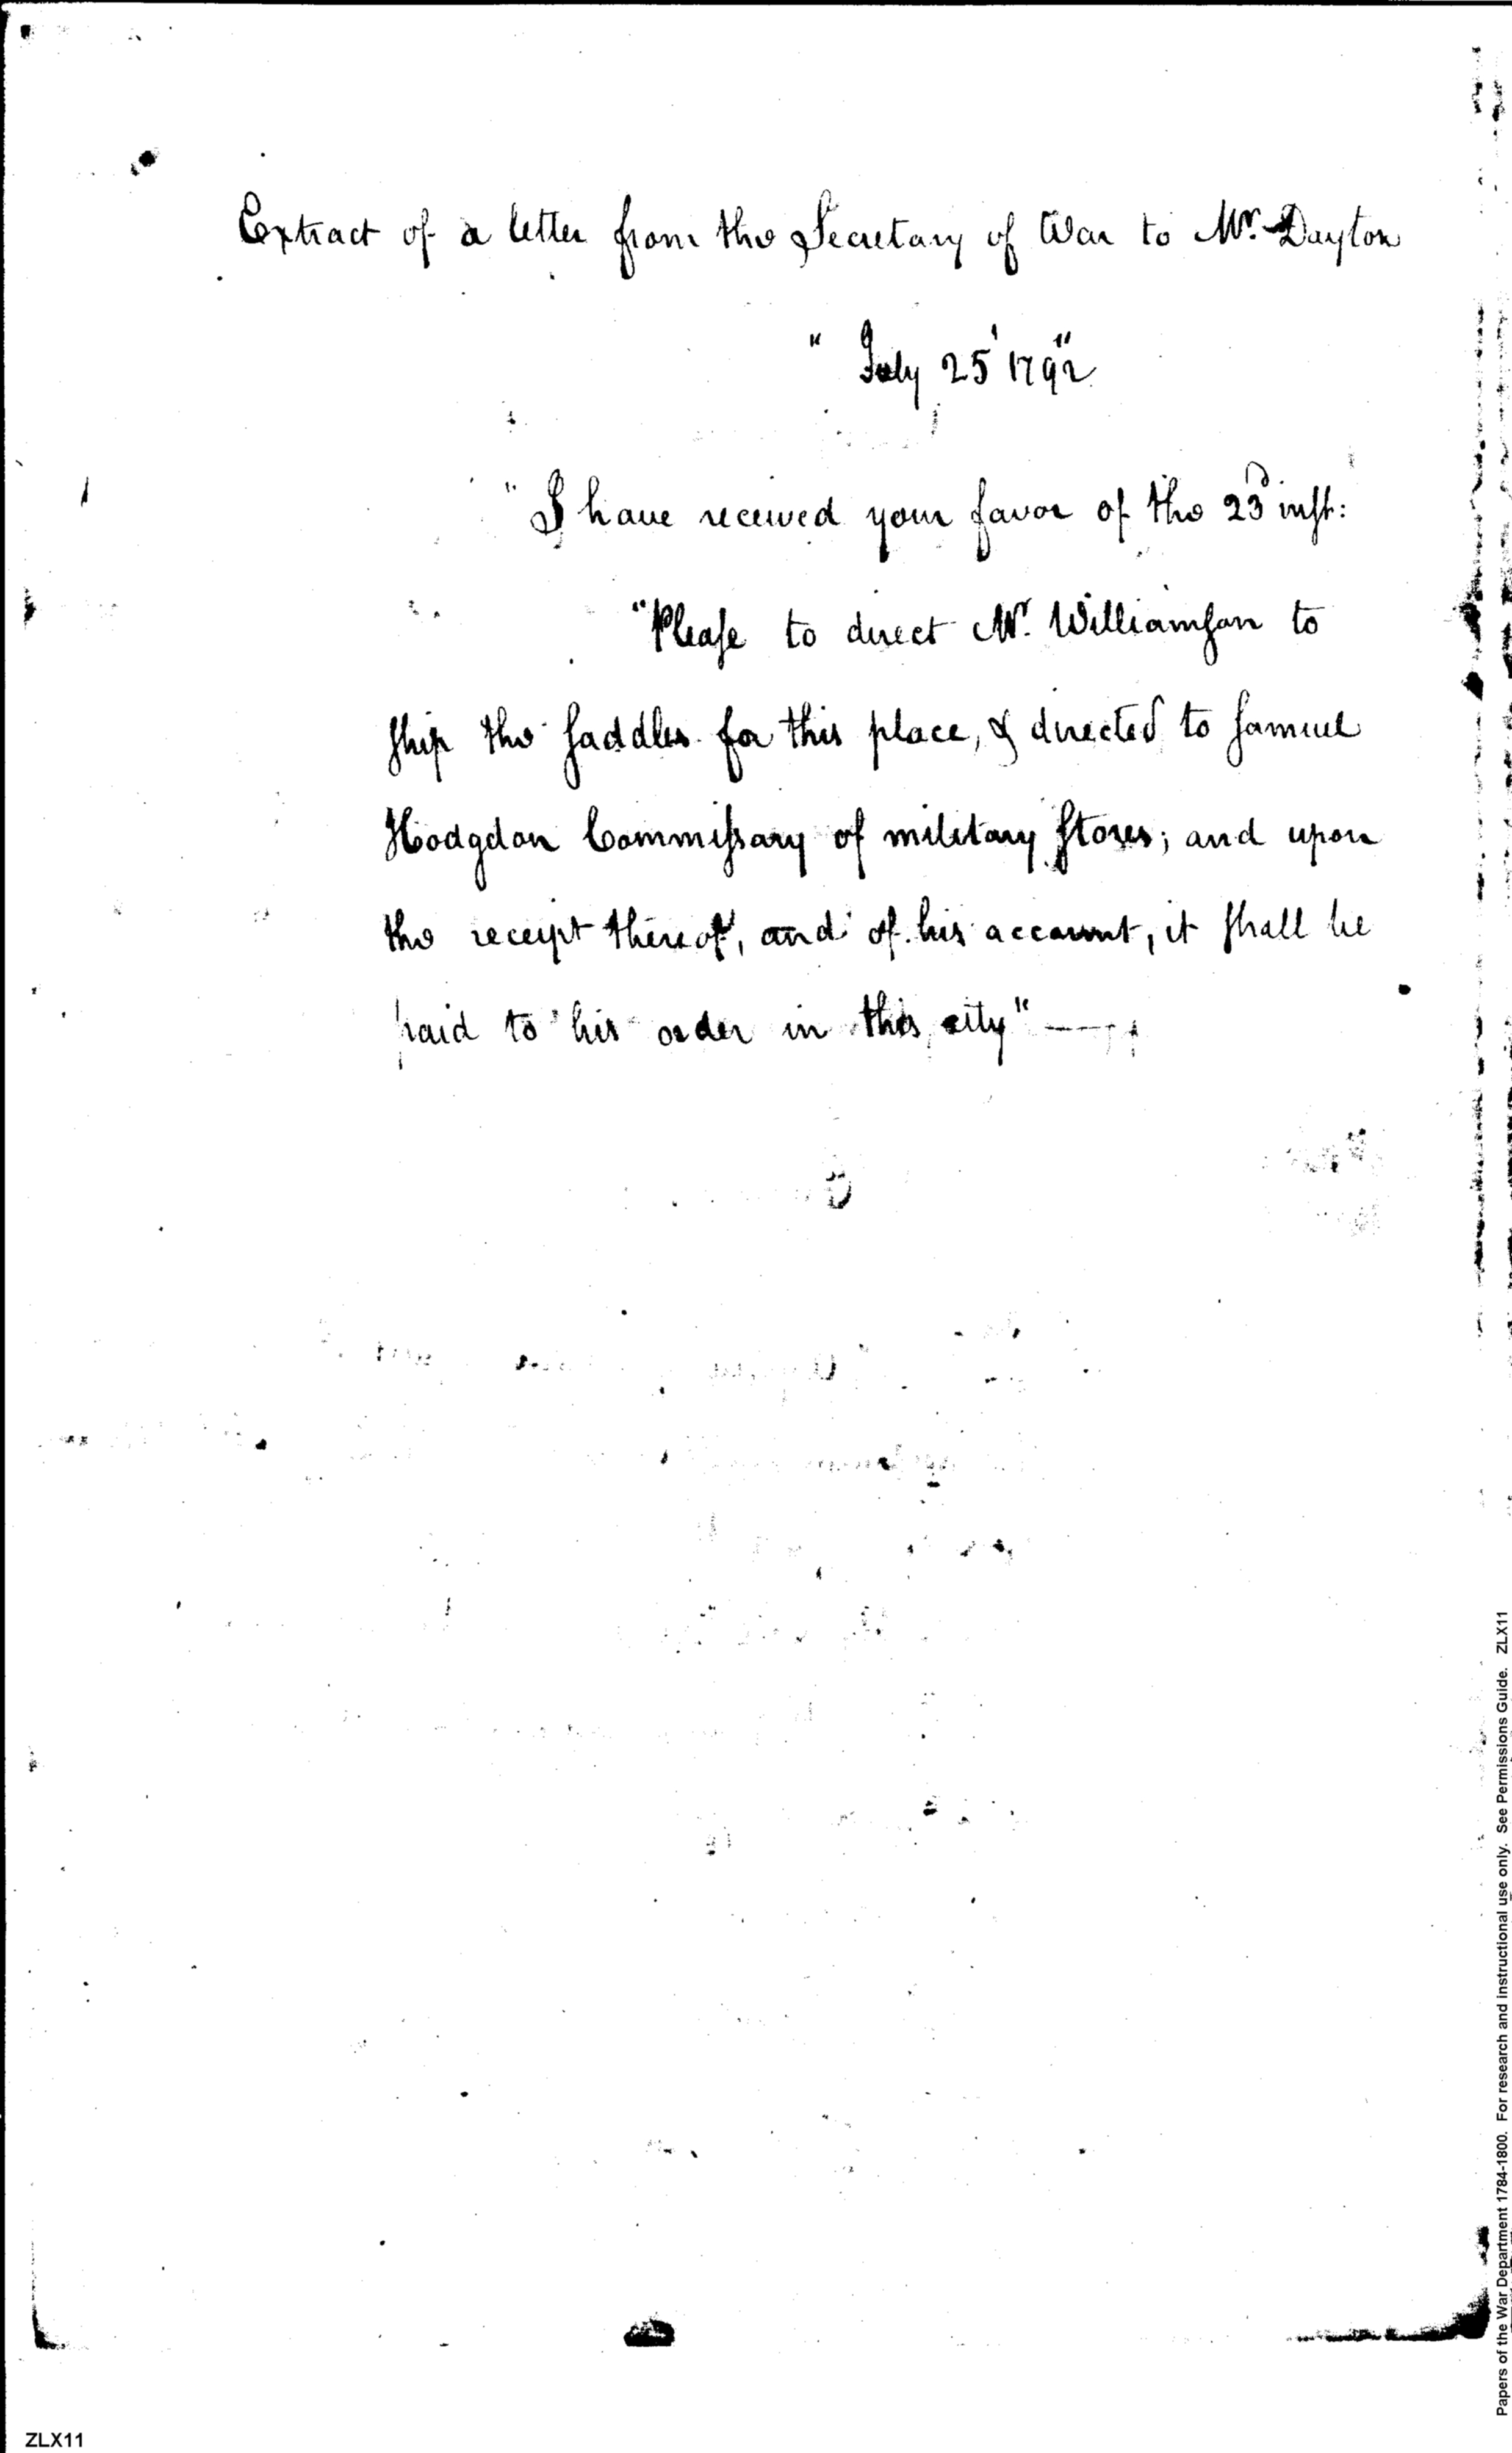 Extract of a letter from the Secretary of War to Mr. Dayton
" July 25 1792"
"I have received your favor of the 23d inst:
"Please to direct Mr. Williamson to
ship the saddles for this place, & directed to Samuel
Hodgdon Commissary of military stores; and upon
the receipt thereof, and of his account, it shall be
paid to his order in this city"
Papers of the War Department 1784-1800. For research and instructional use only. See Permissions Guide. ZLX11
ZLX11